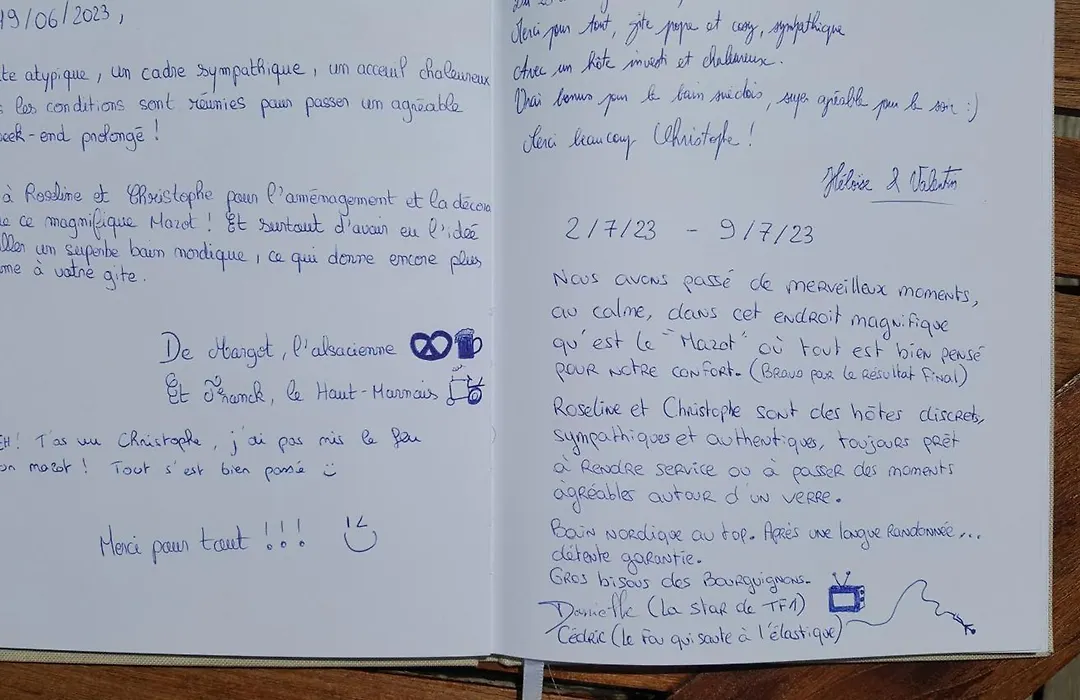 19/06/2023,
te atypique, un cadre sympathique, un acceuil chaleureux
les conditions sont réunies pour passer un agréable
eek-end prolongé !
à Roseline et Christophe pour l'aménagement et la décora
ce magnifique Mazot ! Et surtout d'avoir eu l'idée
aller un superbe bain nordique, ce qui donne encore plus
me à votre gite.
De Margot, l'alsacienne
Et Franck, le Haut-Marnais
EH ! T'as vu Christophe, j'ai pas mis le feu
on mazot ! Tout s'est bien passé
Merci pour tout !!!
Merci pour tout, gîte propre et cosy, sympathique
Avec un hôte investi et chaleureux.
Vrai bonus pour le bain suédois, super agréable pour le soir :)
Merci beaucoup Christophe !
Héloïse & Valentin
2/7/23 - 9/7/23
Nous avons passé de merveilleux moments,
au calme, dans cet endroit magnifique
qu'est le "Mazot" où tout est bien pensé
pour notre confort. (Bravo pour le résultat final)
Roseline et Christophe sont des hôtes discrets,
sympathiques et authentiques, toujours prêt
à rendre service ou à passer des moments
agréables autour d'un verre.
Bain nordique au top. Après une longue randonnée...
détente garantie.
Gros bisous des Bourguignons.
Danielle (la star de TF1)
Cédric (le fou qui saute à l'élastique)